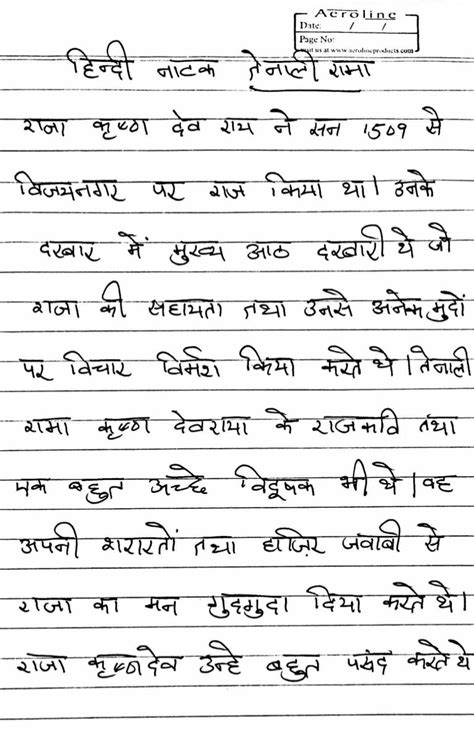 Aeroline
Date: / /
Page No:
visit us at www.aerolineproducts.com
हिन्दी नाटक तेनाली रामा
राजा कृष्ण देव राय ने सन 1509 से
विजयनगर पर राज किया था। उनके
दरबार में मुख्य आठ दरबारी थे जो
राजा की सहायता तथा उनसे अनेक मुदों
पर विचार विर्मश किया करते थे। तेनाली
रामा कृष्ण देवराया के राजकवि तथा
एक बहुत अच्छे विदूषक भी थे। वह
अपनी शरारतों तथा हाज़िर जवाबी से
राजा का मन गुदगुदा दिया करते थे।
राजा कृष्णदेव उन्हे बहुत पसंद करते थे